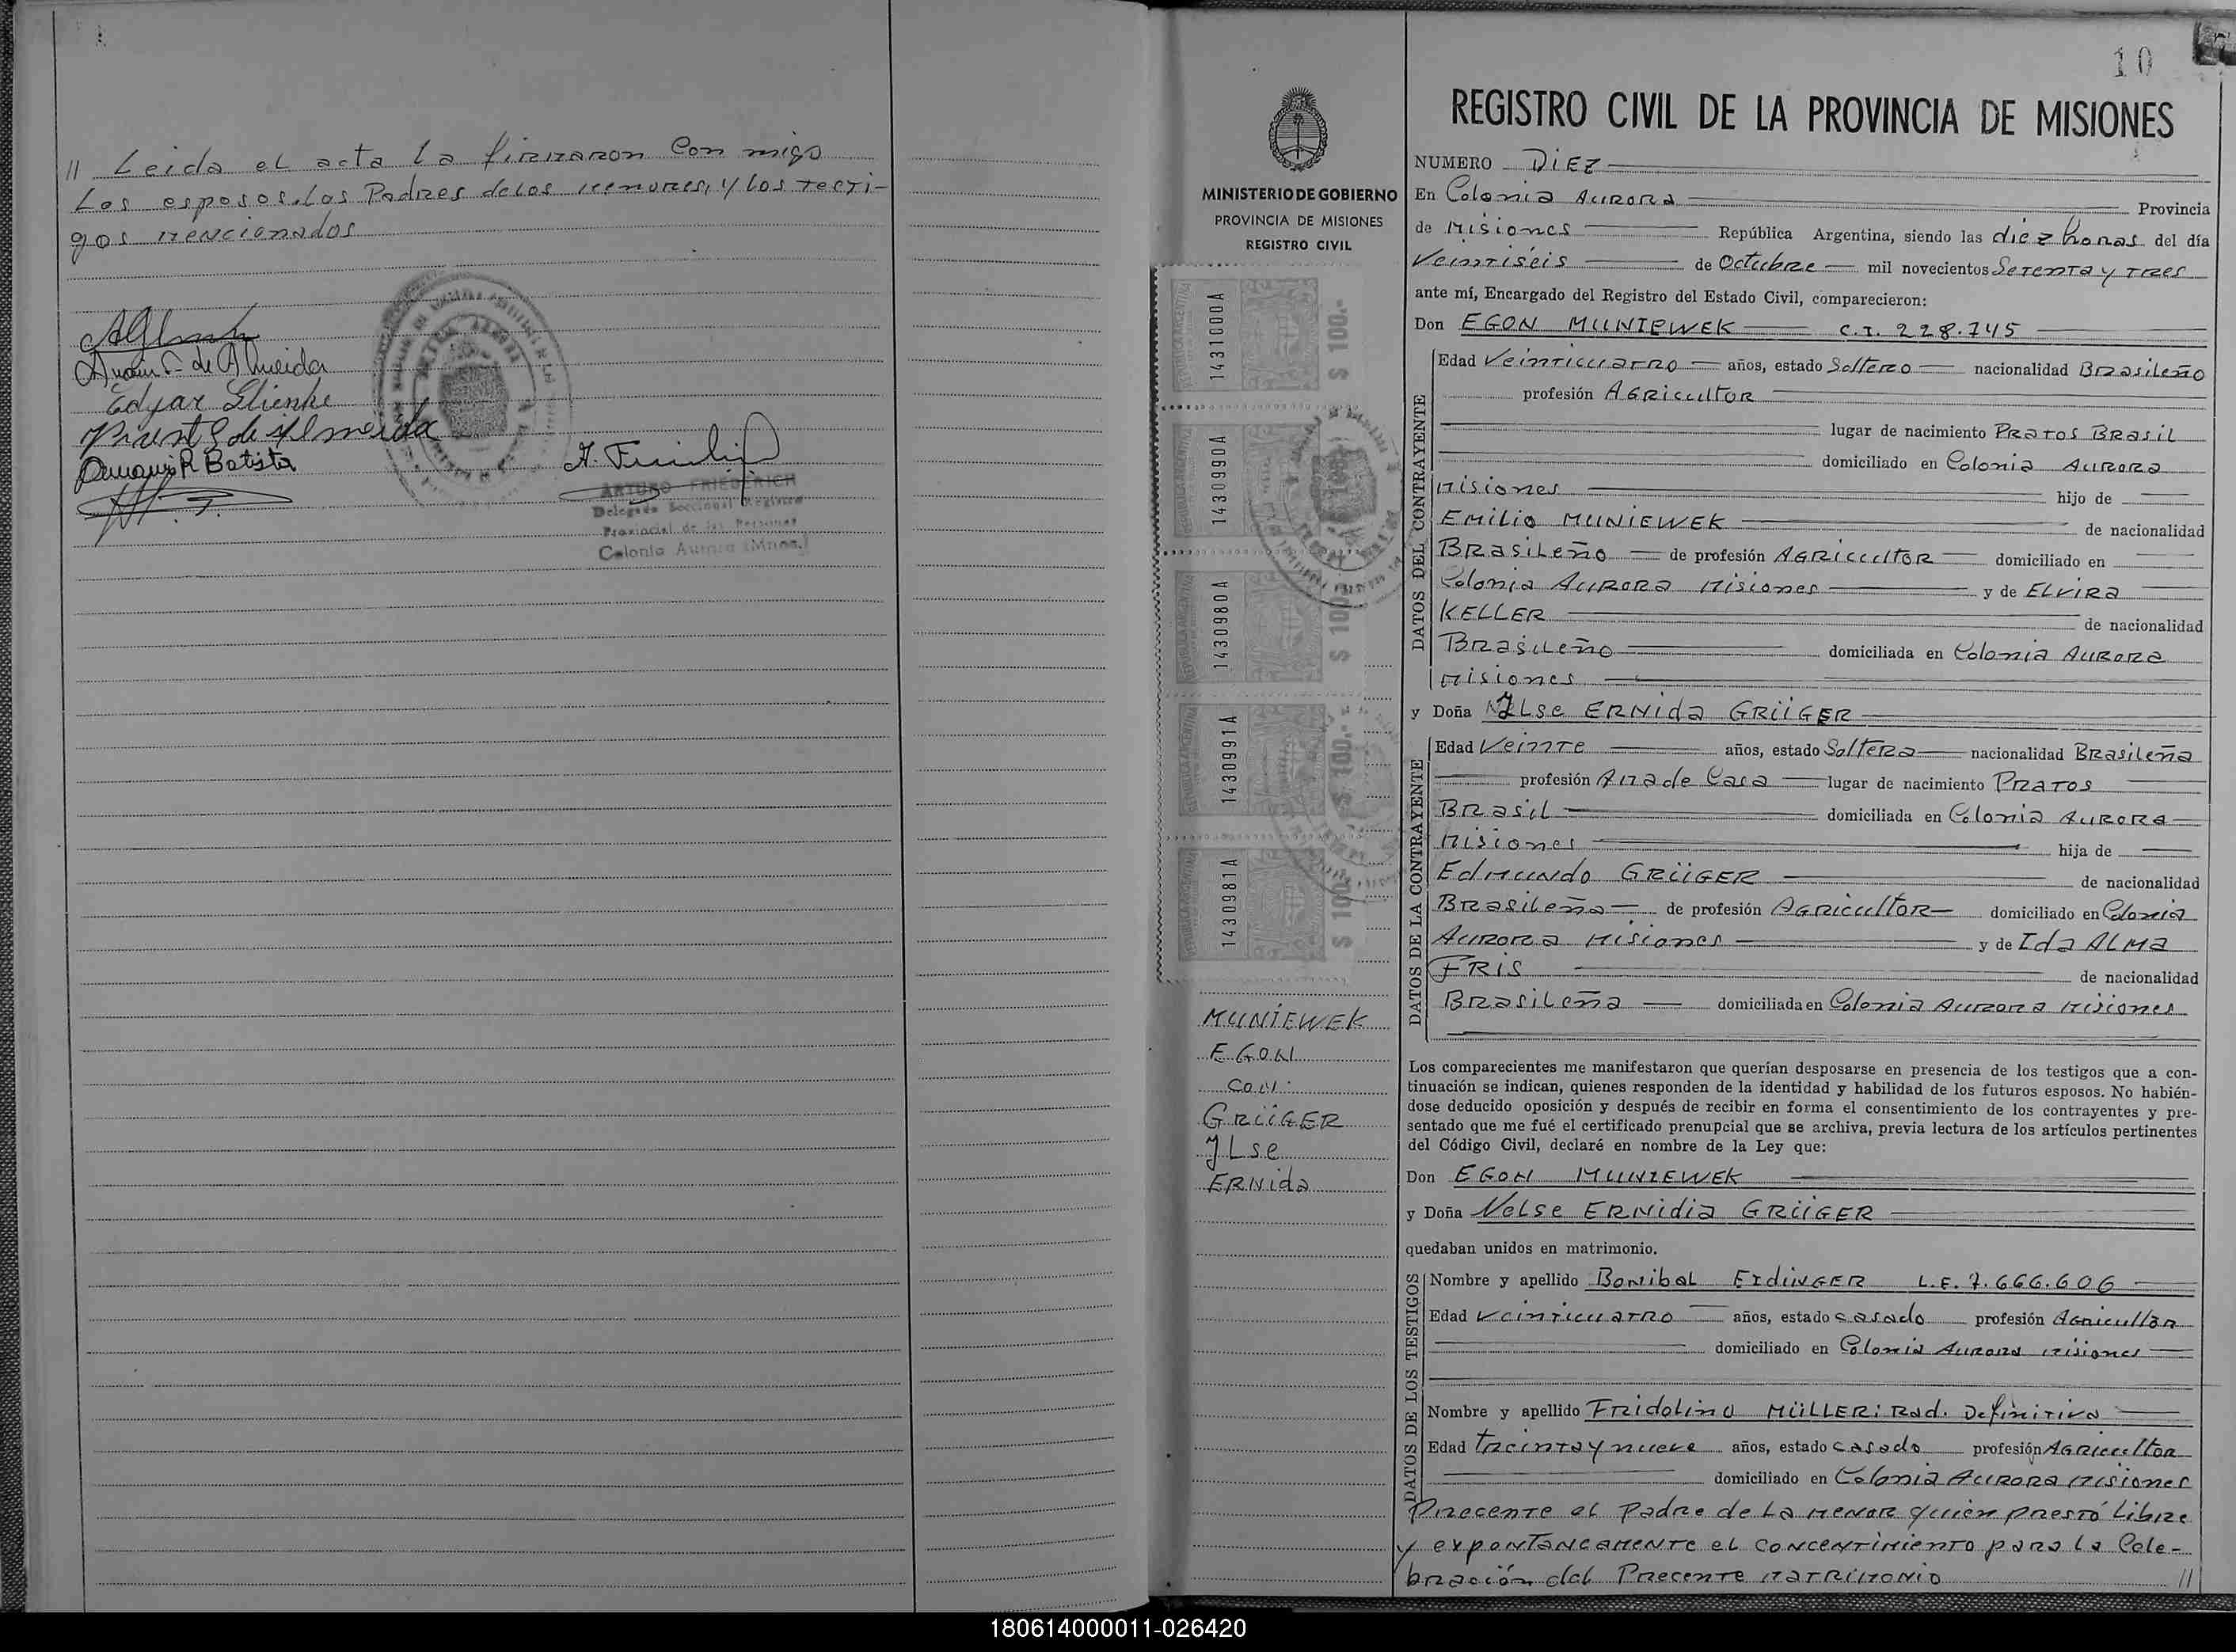 // Leida el acta la firmaron Con migo
Los esposos, los Padres delos menores, y los tecti-
gos mencionados
Edgar Glienke
Vicente G de Almeida
R Batista
ARTURO FRIEDERICH
Delegado Seccional Registro
Provincial de las Personas
Colonia Aurora (Mnes.)
10
REGISTRO CIVIL DE LA PROVINCIA DE MISIONES
MINISTERIO DE GOBIERNO
PROVINCIA DE MISIONES
REGISTRO CIVIL
1431000A
$ 100.-
1430990A
1430980A
$ 100
1430991A
$ 100.-
1430981A
$ 100
MUNIEWEK
EGON
CON:
GRÜGER
YLse
ERNida
NUMERO DiEZ
En Colonia AURORA Provincia
de Misiones República Argentina, siendo las diez horas del día
Veintiséis de Octubre mil novecientos Setenta y Tres
ante mí, Encargado del Registro del Estado Civil, comparecieron:
Don EGON MUNIEWEK C.I. 228.745
DATOS DEL CONTRAYENTE
Edad Veinticuatro años, estado Soltero nacionalidad Brasileño
profesión AGRicultor
lugar de nacimiento PRatos BRasil
domiciliado en Colonia AURORA
Misiones hijo de
EMilio MUNiEWEK de nacionalidad
BRasileño de profesión AGRicultor domiciliado en
Colonia AURORA Misiones y de ELvira
KELLER de nacionalidad
BRasileño domiciliada en Colonia AURORA
Misiones
y Doña YLse ERNida GRÜGER
DATOS DE LA CONTRAYENTE
Edad Veinte años, estado Soltera nacionalidad BRasileña
profesión Ama de Casa lugar de nacimiento PRATOS
BRasil domiciliada en Colonia AURORA
Misiones hija de
EdMundo GRÜGER de nacionalidad
BRasileña de profesión AGRicultor domiciliado en Colonia
AURORA Misiones y de Ida ALMa
FRis de nacionalidad
BRasileña domiciliada en Colonia AURORA Misiones
Los comparecientes me manifestaron que querían desposarse en presencia de los testigos que a con-
tinuación se indican, quienes responden de la identidad y habilidad de los futuros esposos. No habién-
dose deducido oposición y después de recibir en forma el consentimiento de los contrayentes y pre-
sentado que me fué el certificado prenupcial que se archiva, previa lectura de los artículos pertinentes
del Código Civil, declaré en nombre de la Ley que:
Don EGON MUNIEWEK
y Doña Nelse ERNidia GRÜGER
quedaban unidos en matrimonio.
DATOS DE LOS TESTIGOS
Nombre y apellido BONibaL EIdiNGER L.E. 7.666.606
Edad veinticuatro años, estado casado profesión Agricultor
domiciliado en Colonia Aurora Misiones
Nombre y apellido FRidolino MÜLLER: Rad. Definitiva
Edad treinta y nueve años, estado casado profesión AGRicultor
domiciliado en Colonia AURORA Misiones
Precente el Padre de La menor quien prestó Libre
y expontaneamente el concentimiento para la Cele-
bración del Precente matrimonio //
180614000011-026420